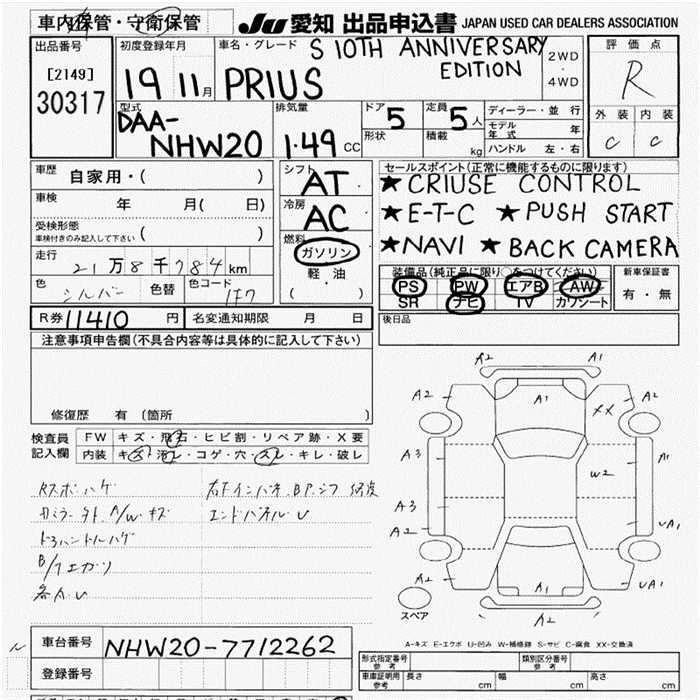 車内保管・守衛保管
JU 愛知 出品申込書 JAPAN USED CAR DEALERS ASSOCIATION
出品番号
[2149]
30317
初度登録年月
19 11月
車名・グレード
S 10TH ANNIVERSARY
EDITION
PRIUS
2WD
・
4WD
評価点
R
外装 内装
C C
型式
DAA-
NHW20
排気量
1.49 CC
ドア 5
形状
定員 5人
積載 kg
ディーラー・並行
モデル年式 年
ハンドル 左・右
車歴 自家用・( )
車検 年 月( 日)
受検形態
車検付きのみ記入して下さい ( )
走行
21万8千784km
色 シルバー 色替 色コード 1F7
シフト
AT
冷房
AC
燃料
ガソリン
軽・油
( )
セールスポイント(正常に機能するものに限ります)
★CRIUSE CONTROL
★E-T-C ★PUSH START
★NAVI ★BACK CAMERA
装備品(純正品に限り○をつけてください)
PS PW エアB AW
SR ナビ TV カワシート
新車保証書
有・無
R券 11410 円 名変通知期限 月 日
後日品
注意事項申告欄(不具合内容等は具体的に記入して下さい)
修復歴 有 (箇所 )
検査員
記入欄
FW キズ・飛石・ヒビ割・リペア跡・X要
内装 キズ・汚レ・コゲ・穴・スレ・キレ・破レ
Rスポハゲ
A/Wキズ
エンドパネルU
各AU
A2 A1
A2 A1 XX A2
A3 W2
A3 UA1
A2
A2 A1 UA1
A2
スペア
A-キズ E-エクボ U-凹み W-補修跡 S-サビ C-腐食 XX-交換済
車台番号 NHW20-7712262
登録番号
形式指定番号
参考
類別区分番号
参考
車庫証明用
参考
長さ cm 幅 cm 高さ cm